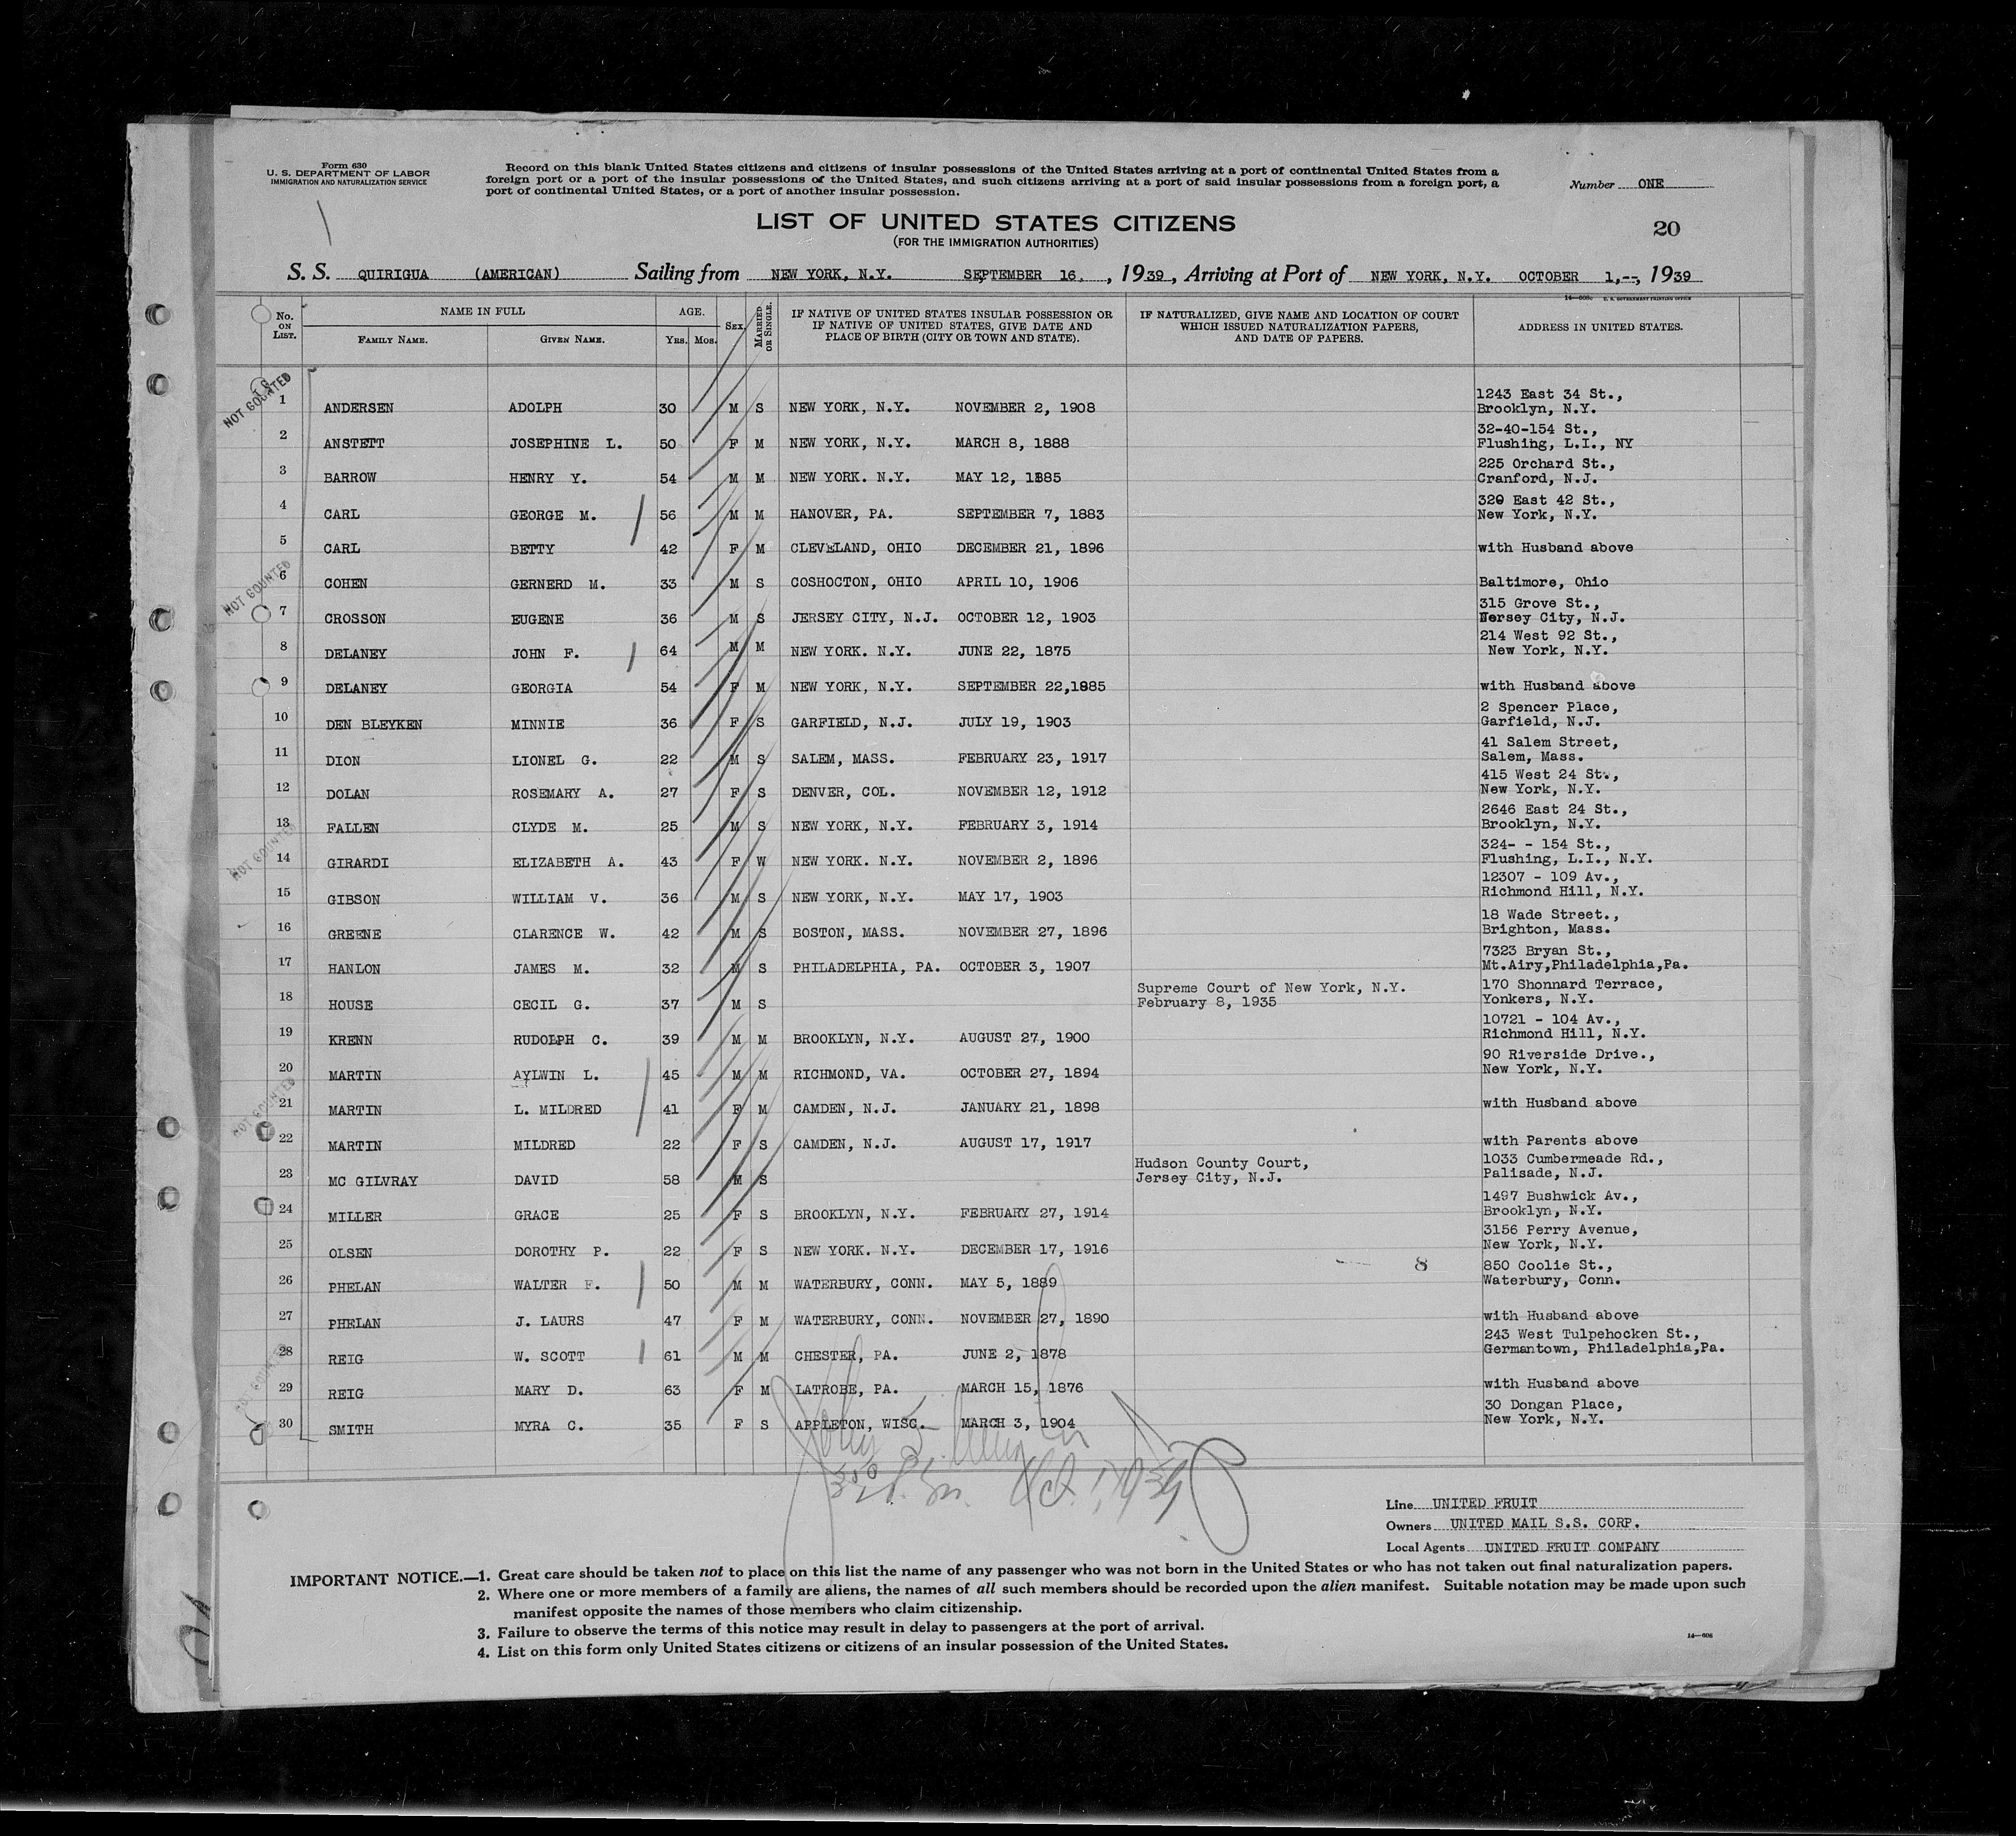 Form 630
U. S. DEPARTMENT OF LABOR
IMMIGRATION AND NATURALIZATION SERVICE
Record on this blank United States citizens and citizens of insular possessions of the United States arriving at a port of continental United States from a
foreign port or a port of the insular possessions of the United States, and such citizens arriving at a port of said insular possessions from a foreign port, a
port of continental United States, or a port of another insular possession.
Number ONE
20
LIST OF UNITED STATES CITIZENS
(FOR THE IMMIGRATION AUTHORITIES)
S. S. QUIRIGUA (AMERICAN) Sailing from NEW YORK, N.Y. SEPTEMBER 16, , 1939 , Arriving at Port of NEW YORK, N.Y. OCTOBER 1,--, 1939
14—608c U. S. GOVERNMENT PRINTING OFFICE
No. ON LIST. NAME IN FULL AGE. SEX. MARRIED OR SINGLE. IF NATIVE OF UNITED STATES INSULAR POSSESSION OR IF NATIVE OF UNITED STATES, GIVE DATE AND PLACE OF BIRTH (CITY OR TOWN AND STATE). IF NATURALIZED, GIVE NAME AND LOCATION OF COURT WHICH ISSUED NATURALIZATION PAPERS, AND DATE OF PAPERS. ADDRESS IN UNITED STATES.
FAMILY NAME. GIVEN NAME. YRS. MOS.
NOT COUNTED
1 ANDERSEN ADOLPH 30 M S NEW YORK, N.Y. NOVEMBER 2, 1908 1243 East 34 St., Brooklyn, N.Y.
2 ANSTETT JOSEPHINE L. 50 F M NEW YORK, N.Y. MARCH 8, 1888 32-40-154 St., Flushing, L.I., NY
3 BARROW HENRY Y. 54 M M NEW YORK. N.Y. MAY 12, 1885 225 Orchard St., Cranford, N.J.
4 CARL GEORGE M. 56 M M HANOVER, PA. SEPTEMBER 7, 1883 320 East 42 St., New York, N.Y.
5 CARL BETTY 42 F M CLEVELAND, OHIO DECEMBER 21, 1896 with Husband above
NOT COUNTED
6 COHEN GERNERD M. 33 M S COSHOCTON, OHIO APRIL 10, 1906 Baltimore, Ohio
7 CROSSON EUGENE 36 M S JERSEY CITY, N.J. OCTOBER 12, 1903 315 Grove St., Jersey City, N.J.
8 DELANEY JOHN F. 64 M M NEW YORK. N.Y. JUNE 22, 1875 214 West 92 St., New York, N.Y.
9 DELANEY GEORGIA 54 F M NEW YORK, N.Y. SEPTEMBER 22,1885 with Husband above
10 DEN BLEYKEN MINNIE 36 F S GARFIELD, N.J. JULY 19, 1903 2 Spencer Place, Garfield, N.J.
11 DION LIONEL G. 22 M S SALEM, MASS. FEBRUARY 23, 1917 41 Salem Street, Salem, Mass.
12 DOLAN ROSEMARY A. 27 F S DENVER, COL. NOVEMBER 12, 1912 415 West 24 St., New York, N.Y.
13 FALLEN CLYDE M. 25 M S NEW YORK, N.Y. FEBRUARY 3, 1914 2646 East 24 St., Brooklyn, N.Y.
NOT COUNTED
14 GIRARDI ELIZABETH A. 43 F W NEW YORK. N.Y. NOVEMBER 2, 1896 324- - 154 St., Flushing, L.I., N.Y.
15 GIBSON WILLIAM V. 36 M S NEW YORK, N.Y. MAY 17, 1903 12307 - 109 Av., Richmond Hill, N.Y.
16 GREENE CLARENCE W. 42 M S BOSTON, MASS. NOVEMBER 27, 1896 18 Wade Street., Brighton, Mass.
17 HANLON JAMES M. 32 M S PHILADELPHIA, PA. OCTOBER 3, 1907 7323 Bryan St., Mt.Airy,Philadelphia,Pa.
18 HOUSE CECIL G. 37 M S Supreme Court of New York, N.Y. February 8, 1935 170 Shonnard Terrace, Yonkers, N.Y.
19 KRENN RUDOLPH C. 39 M M BROOKLYN, N.Y. AUGUST 27, 1900 10721 - 104 Av., Richmond Hill, N.Y.
20 MARTIN AYLWIN L. 45 M M RICHMOND, VA. OCTOBER 27, 1894 90 Riverside Drive., New York, N.Y.
NOT COUNTED
21 MARTIN L. MILDRED 41 F M CAMDEN, N.J. JANUARY 21, 1898 with Husband above
22 MARTIN MILDRED 22 F S CAMDEN, N.J. AUGUST 17, 1917 with Parents above
23 MC GILVRAY DAVID 58 M S Hudson County Court, Jersey City, N.J. 1033 Cumbermeade Rd., Palisade, N.J.
24 MILLER GRACE 25 F S BROOKLYN, N.Y. FEBRUARY 27, 1914 1497 Bushwick Av., Brooklyn, N.Y.
25 OLSEN DOROTHY P. 22 F S NEW YORK. N.Y. DECEMBER 17, 1916 3156 Perry Avenue, New York, N.Y.
26 PHELAN WALTER F. 50 M M WATERBURY, CONN. MAY 5, 1889 8 850 Coolie St., Waterbury, Conn.
27 PHELAN J. LAURS 47 F M WATERBURY, CONN. NOVEMBER 27, 1890 with Husband above
28 REIG W. SCOTT 61 M M CHESTER, PA. JUNE 2, 1878 243 West Tulpehocken St., Germantown, Philadelphia,Pa.
29 REIG MARY D. 63 F M LATROBE, PA. MARCH 15, 1876 with Husband above
30 SMITH MYRA C. 35 F S APPLETON, WISC. MARCH 3, 1904 30 Dongan Place, New York, N.Y.
Oct. 1, 1939
Line UNITED FRUIT
Owners UNITED MAIL S.S. CORP.
Local Agents UNITED FRUIT COMPANY
IMPORTANT NOTICE.—1. Great care should be taken not to place on this list the name of any passenger who was not born in the United States or who has not taken out final naturalization papers.
2. Where one or more members of a family are aliens, the names of all such members should be recorded upon the alien manifest. Suitable notation may be made upon such
manifest opposite the names of those members who claim citizenship.
3. Failure to observe the terms of this notice may result in delay to passengers at the port of arrival.
4. List on this form only United States citizens or citizens of an insular possession of the United States.
14—608